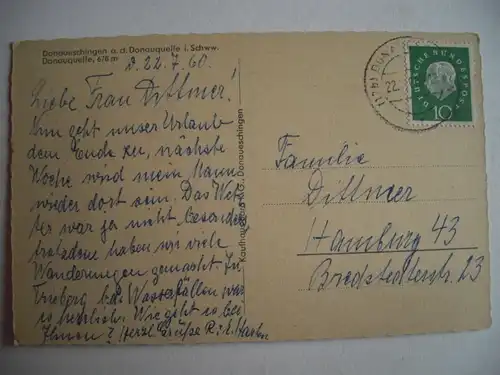 Donaueschingen a. d. Donauquelle i. Schww.
Donauquelle, 678 m
d. 22.7.60.
Liebe Frau Dittmer!
Nun geht unser Urlaub
dem Ende zu, nächste
Woche wird mein Mann
wieder dort sein. Das Wet-
ter war ja nicht besonders
trotzdem haben wir viele
Wanderungen gemacht. In
Triberg bei Wasserfällen war
es herrlich. Wie geht es bei
Ihnen? Herzl. Grüße
Donaueschingen
DEUTSCHE BUNDESPOST
10
22
Familie
Dittmer
Hamburg 43
Bredstedterstr. 23